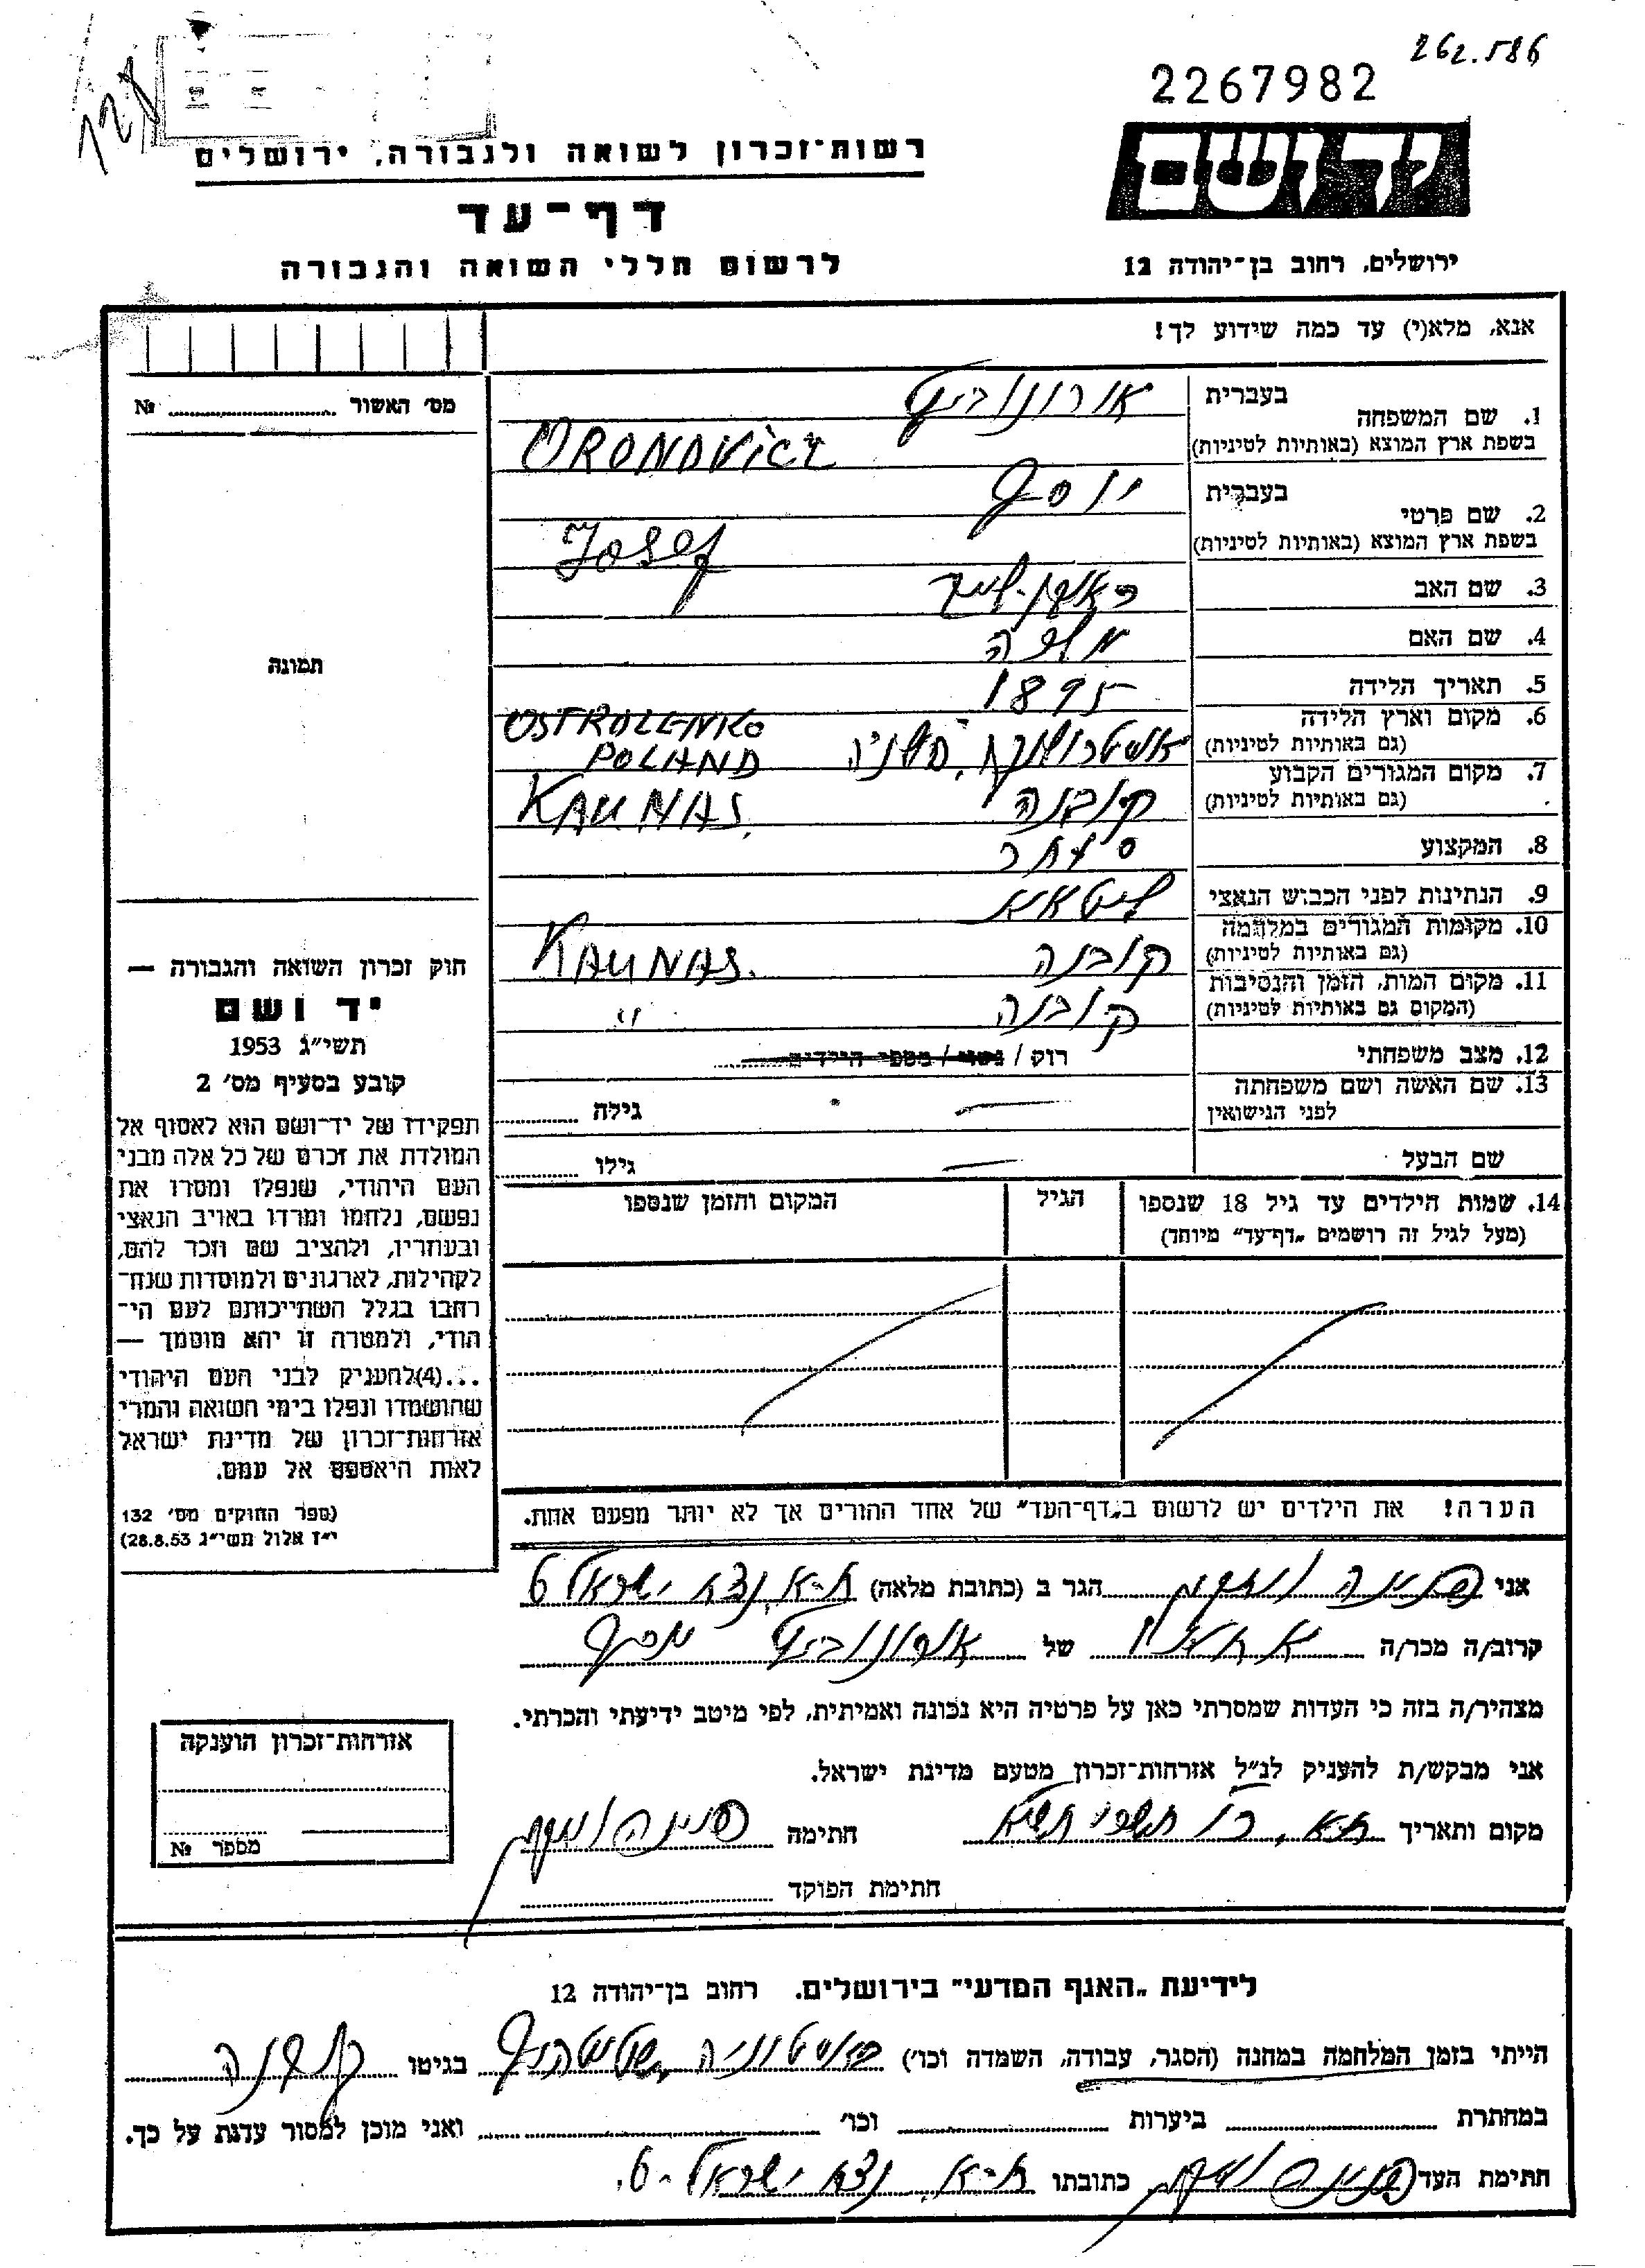 262.586
2267982
128
יד ושם
רשות־זכרון לשואה ולגבורה, ירושלים
דף־עד
ירושלים, רחוב בן־יהודה 12
לרשום חללי השואה והגבורה
אנא, מלא(י) עד כמה שידוע לך!
מס׳ האשור № ........
תמונה
1. שם המשפחה
בעברית אורונוביץ
בשפת ארץ המוצא (באותיות לטיניות) ORONOVICZ
2. שם פרטי
בעברית יוסף
בשפת ארץ המוצא (באותיות לטיניות) Josef
3. שם האב
4. שם האם
5. תאריך הלידה 1895
6. מקום וארץ הלידה
(גם באותיות לטיניות) פולניה OSTROLENKO POLAND
7. מקום המגורים הקבוע
(גם באותיות לטיניות) קובנה KAUNAS
8. המקצוע סוחר
9. הנתינות לפני הכבוש הנאצי ליטאית
10. מקומות המגורים במלחמה
(גם באותיות לטיניות) קובנה KAUNAS.
11. מקום המות, הזמן והנסיבות
(המקום גם באותיות לטיניות) קובנה "
12. מצב משפחתי רוק / נשוי / מספר הילדים
13. שם האשה ושם משפחתה
לפני הנישואין — גילה
שם הבעל — גילו
14. שמות הילדים עד גיל 18 שנספו הגיל המקום והזמן שנספו
(מעל לגיל זה רושמים „דף־עד״ מיוחד)
חוק זכרון השואה והגבורה —
יד ושם
תשי״ג 1953
קובע בסעיף מס׳ 2
תפקידו של יד־ושם הוא לאסוף אל
המולדת את זכרם של כל אלה מבני
העם היהודי, שנפלו ומסרו את
נפשם, נלחמו ומרדו באויב הנאצי
ובעוזריו, ולהציב שם וזכר להם,
לקהילות, לארגונים ולמוסדות שנח־
רחבו בגלל השתייכותם לעם הי־
הודי, ולמטרה זו יהא מוסמך —
...(4)להעניק לבני העם היהודי
שהושמדו ונפלו בימי השואה והמרי
אזרחות־זכרון של מדינת ישראל
לאות היאספם אל עמם.
(ספר החוקים מס׳ 132
י״ז אלול תשי״ג 28.8.53)
הערה! את הילדים יש לרשום ב„דף־העד״ של אחד ההורים אך לא יותר מפעם אחת.
אני פנינה הגר ב (כתובת מלאה) ת״א, נצח ישראל 6
קרוב/ה מכר/ה של אורונוביץ יוסף
מצהיר/ה בזה כי העדות שמסרתי כאן על פרטיה היא נכונה ואמיתית, לפי מיטב ידיעתי והכרתי.
אני מבקש/ת להעניק לנ״ל אזרחות־זכרון מטעם מדינת ישראל.
מקום ותאריך ת״א, תשרי חתימה פנינה
חתימת הפוקד
אזרחות־זכרון הוענקה
מספר №
לידיעת „האגף המדעי״ בירושלים. רחוב בן־יהודה 12
הייתי בזמן המלחמה במחנה (הסגר, עבודה, השמדה וכו׳) שטוטהוף בגיטו קובנה
במחתרת ביערות וכו׳ ואני מוכן למסור עדות על כך.
חתימת העד פנינה כתובתו ת״א, נצח ישראל 6.